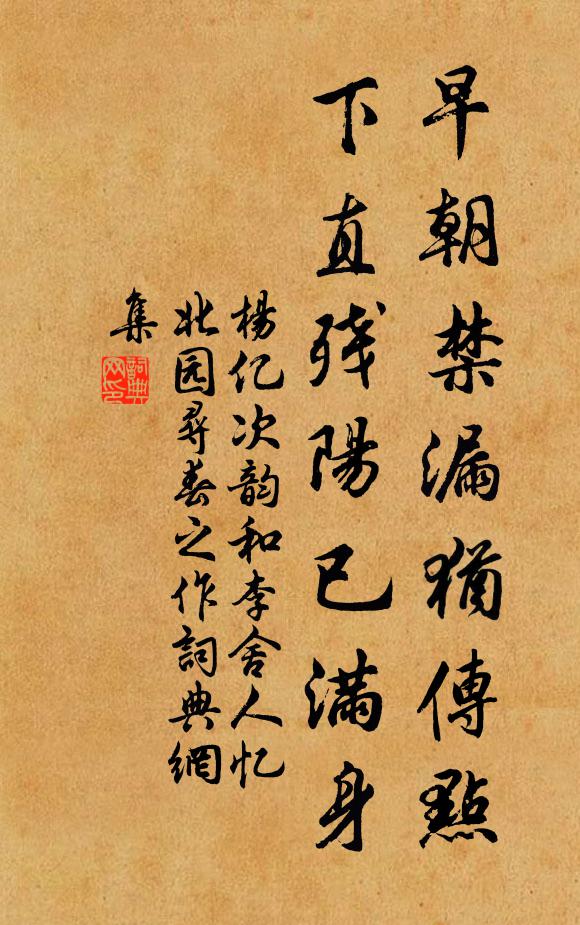 早朝禁漏猶傳點
下直残陽已滿身
楊亿次韵和李舍人忆
北园尋春之作詞典網
集
詞典
网印